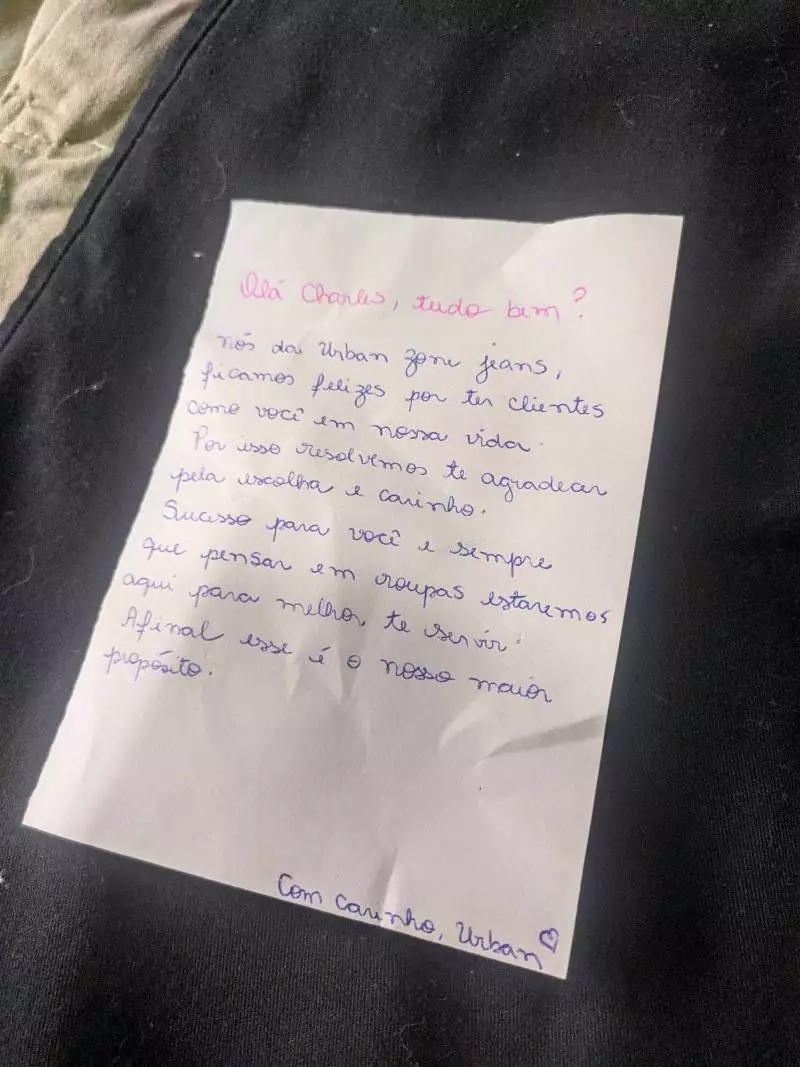 Olá Charles, tudo bem?
nós da Urban zone jeans,
ficamos felizes por ter clientes
como você em nossa vida.
Por isso resolvemos te agradecer
pela escolha e carinho.
Sucesso para você e sempre
que pensar em roupas estaremos
aqui para melhor te servir.
Afinal esse é o nosso maior
propósito.
Com carinho, Urban ♡